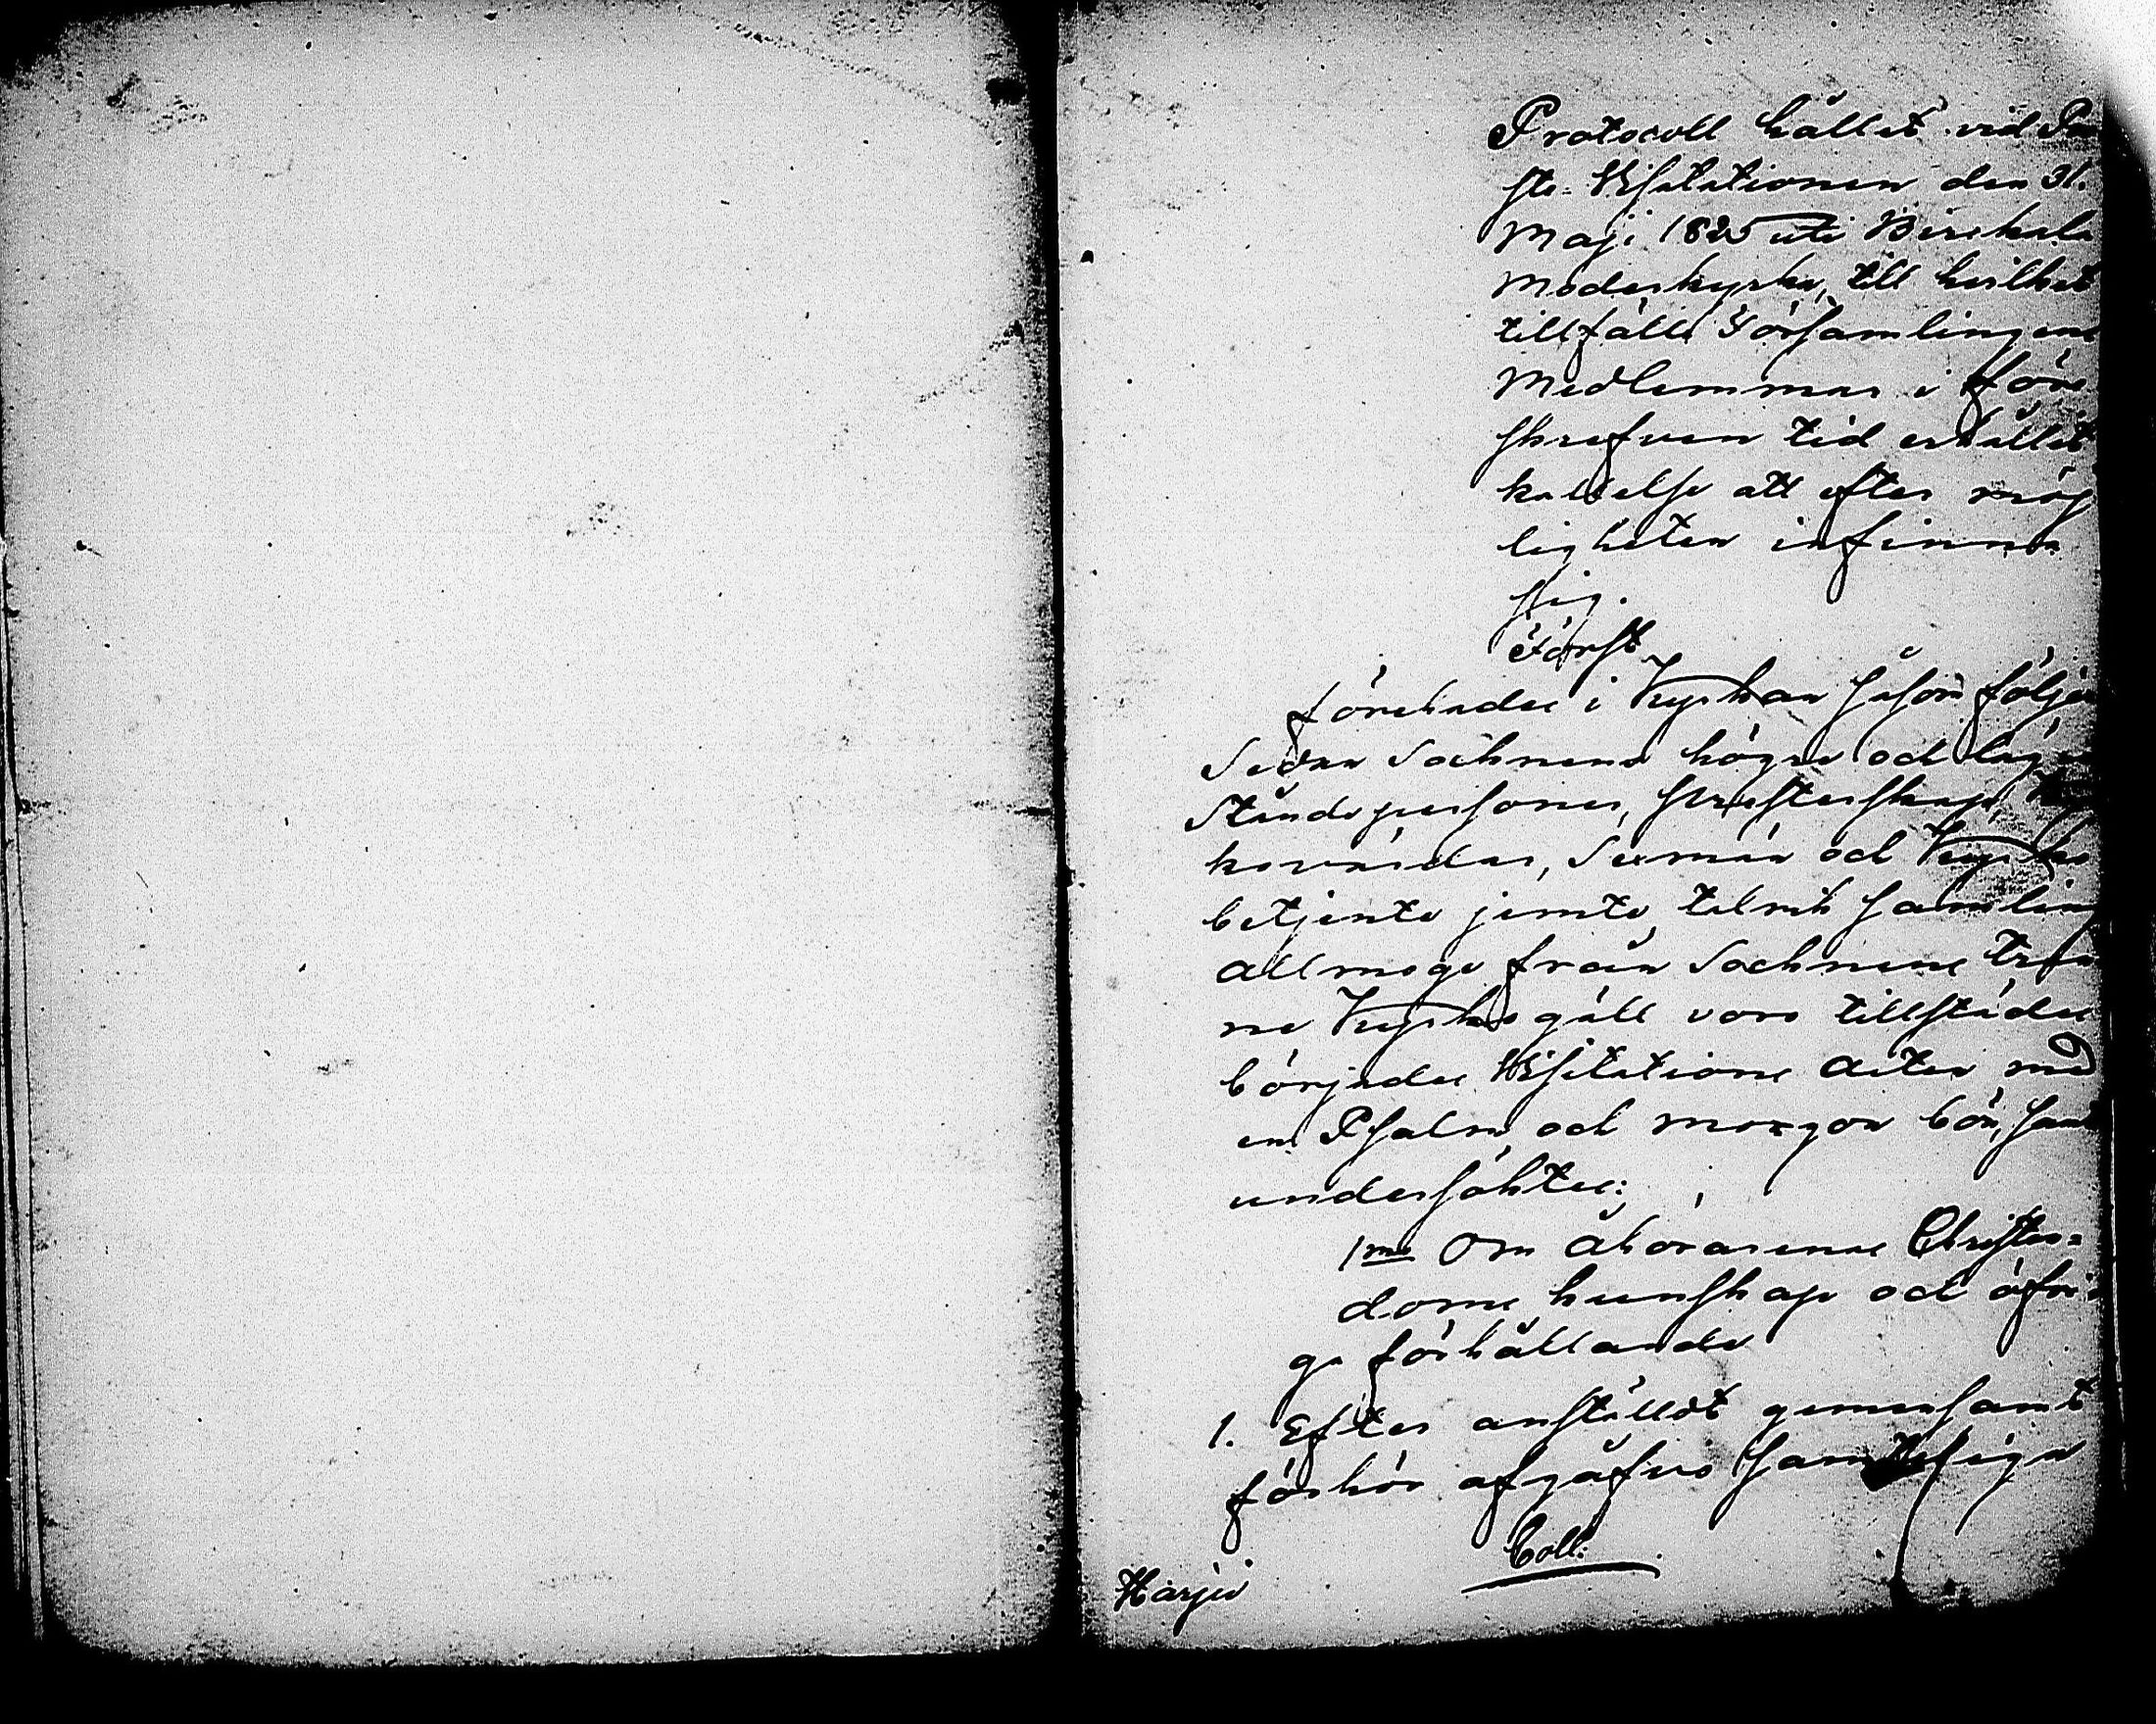 Protocoll hållet vid Pro
sts-Visitationen den 31.
Maji 1825 uti Birckala
Moderkyrka, till hvilket
tillfälle Församlingens
Medlemmar i före
skrefven tid erhållit
kallelse att efter mög
ligheten infinna
sig.
Först
förehades i Kyrkan såsom följer
Sedan Socknens högre och lägre
Ståndspersoner, Presterskap,
kovärdar, Sexmän och Kyrko
betjente jemte talrik samling
allmoge från Socknens
ne Kyrkogäll voro tillstädes
börjades Visitations Acten med
en Psalm och morgon bön, samt
undersöktes:
1mo Om åhörarenes Christen=
doms kunskap och öfri
ga förhållande
1. Efter anstäldt gemensamt
förhör afgåfvo
Coll:
Harju